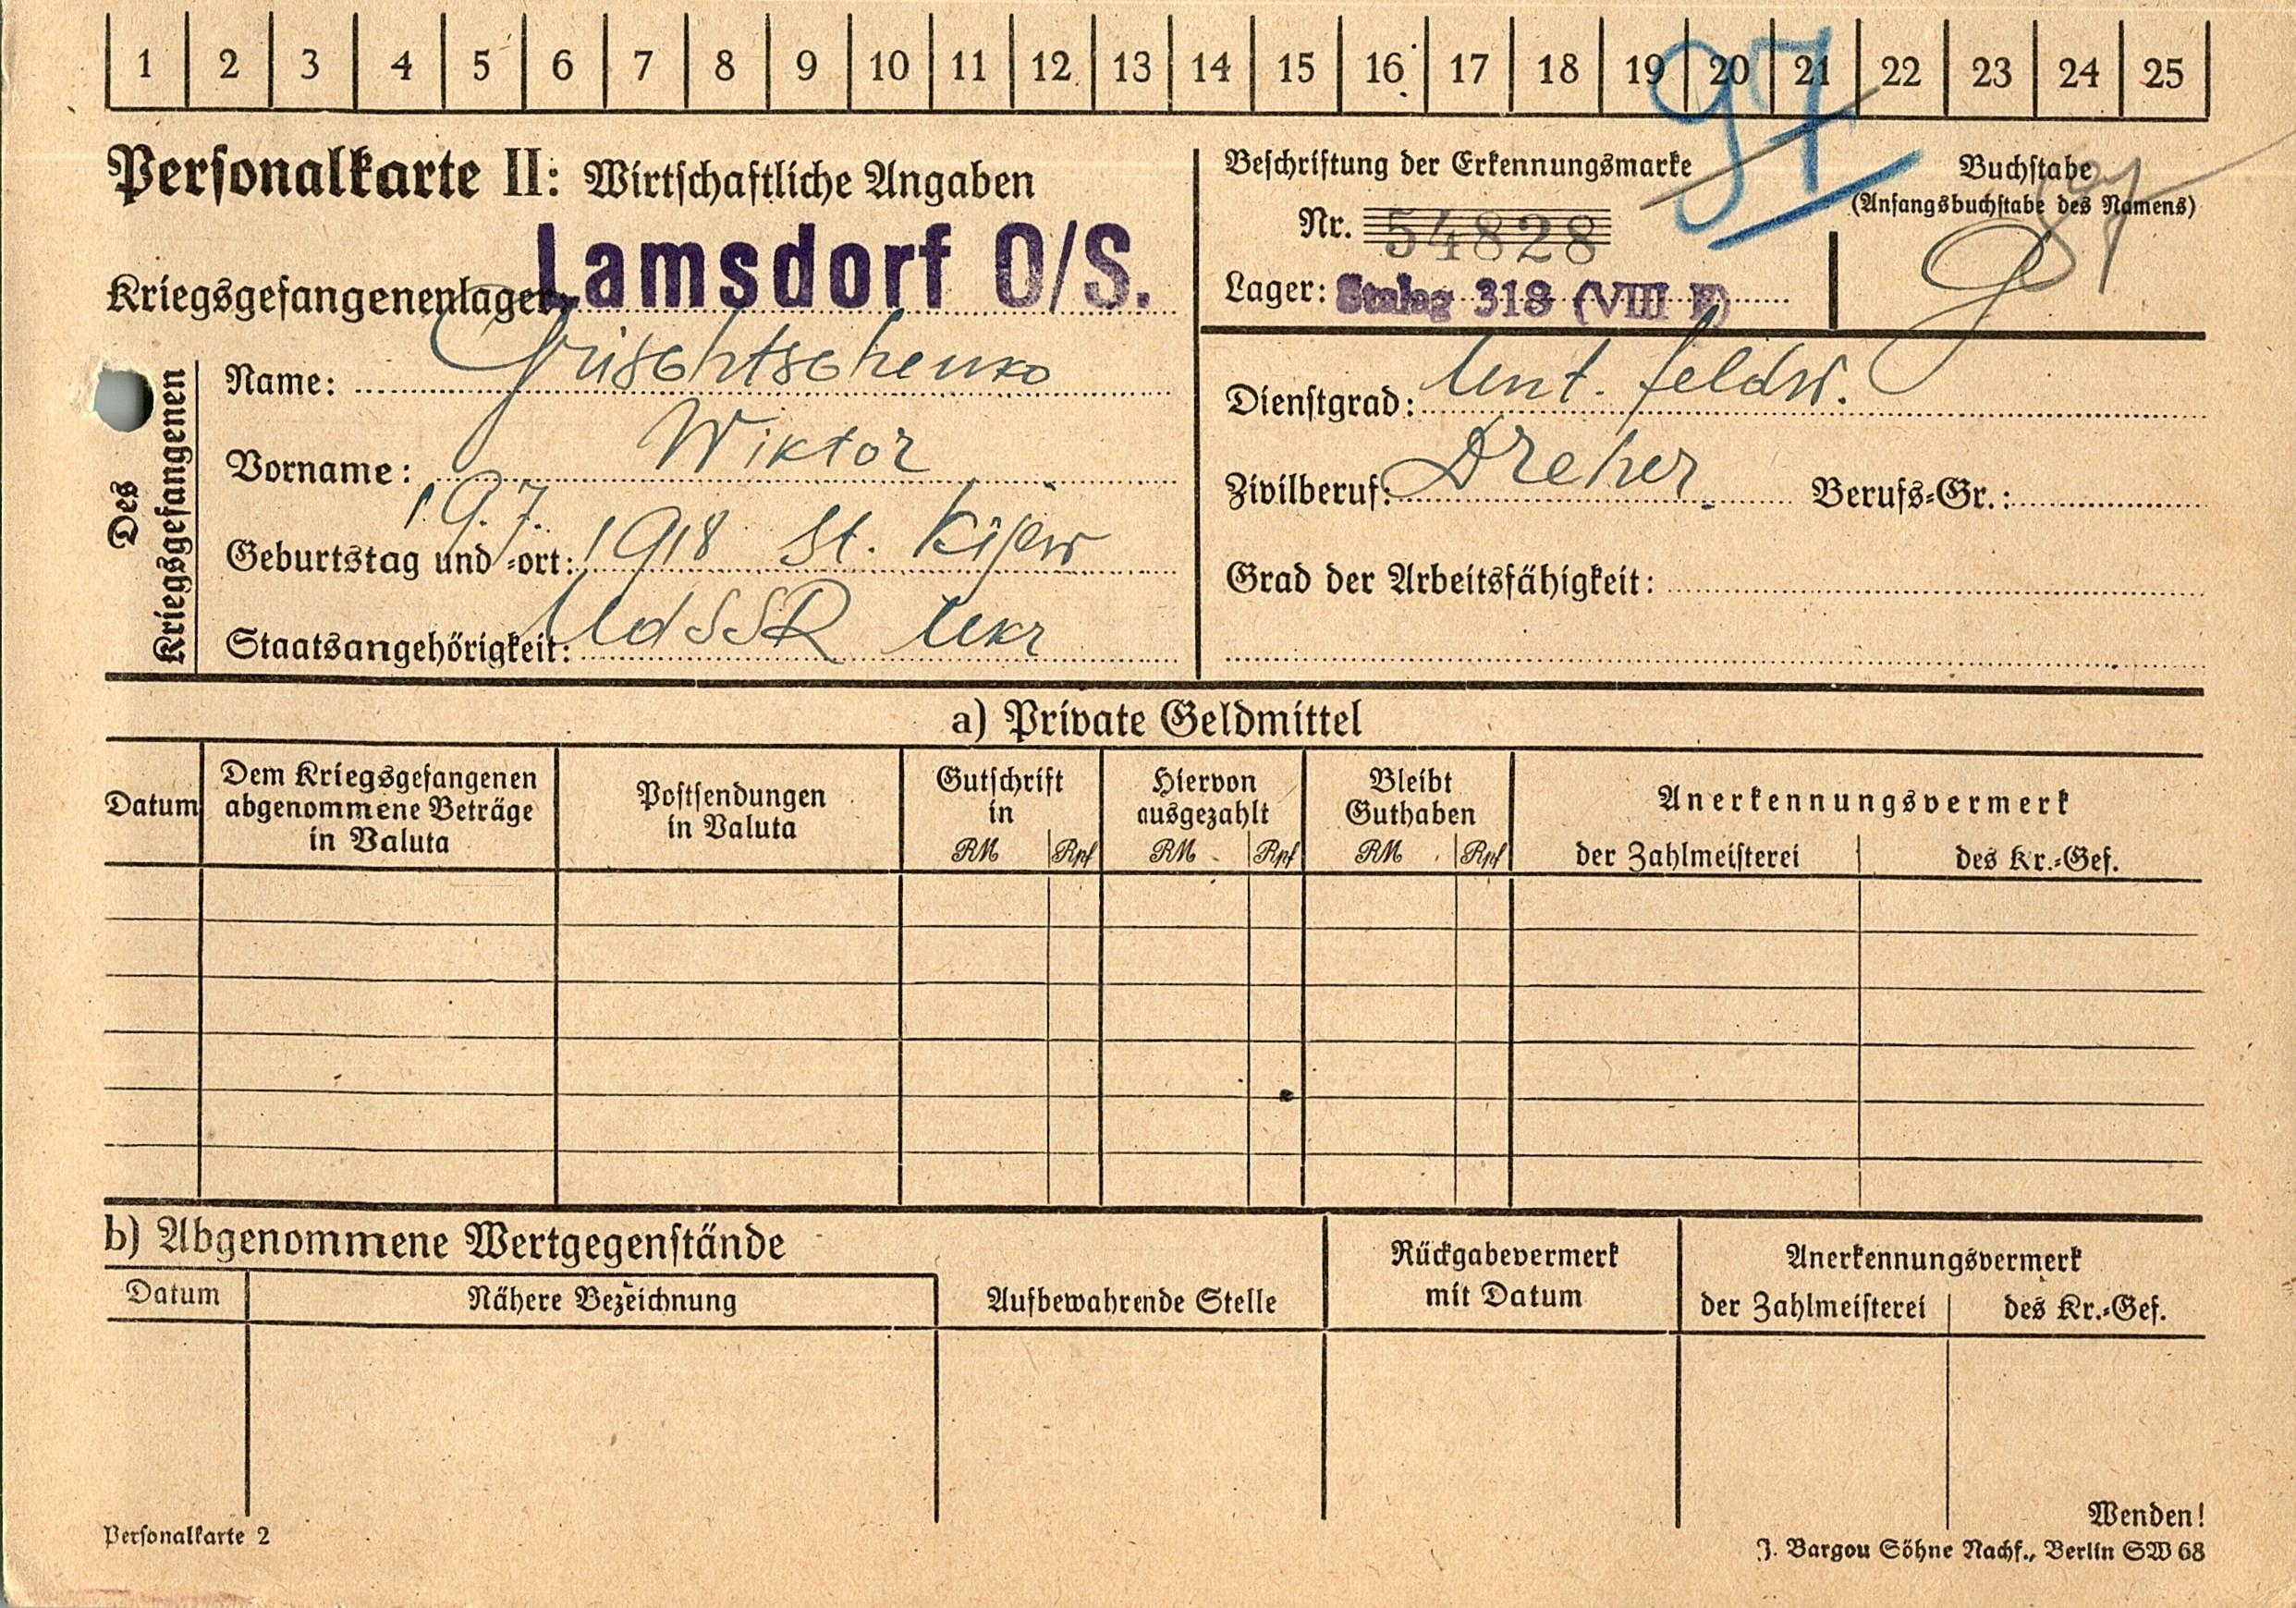 1 2 3 4 5 6 7 8 9 10 11 12 13 14 15 16 17 18 19 20 21 22 23 24 25
97
Personalkarte II: Wirtschaftliche Angaben
Beschriftung der Erkennungsmarke
Nr. 54828
Lager: Stalag 318 (VIII F)
Buchstabe
(Anfangsbuchstabe des Namens)
G
Kriegsgefangenenlager: Lamsdorf O/S.
Des Kriegsgefangenen
Name: Grischtschenko
Vorname: Wiktor
Geburtstag und -ort: 19.7. 1918 St. Kijew
Staatsangehörigkeit: UdSSR Ukr
Dienstgrad: Unt. feldw.
Zivilberuf: Dreher Berufs-Gr.:
Grad der Arbeitsfähigkeit:
a) Private Geldmittel
Datum
Dem Kriegsgefangenen
abgenommene Beträge
in Valuta
Postsendungen
in Valuta
Gutschrift
in
RM Rpf
Hiervon
ausgezahlt
RM Rpf
Bleibt
Guthaben
RM Rpf
Anerkennungsvermerk
der Zahlmeisterei des Kr.-Gef.
b) Abgenommene Wertgegenstände
Datum Nähere Bezeichnung
Aufbewahrende Stelle
Rückgabevermerk
mit Datum
Anerkennungsvermerk
der Zahlmeisterei des Kr.-Gef.
Wenden!
Personalkarte 2
J. Bargou Söhne Nachf., Berlin SW 68